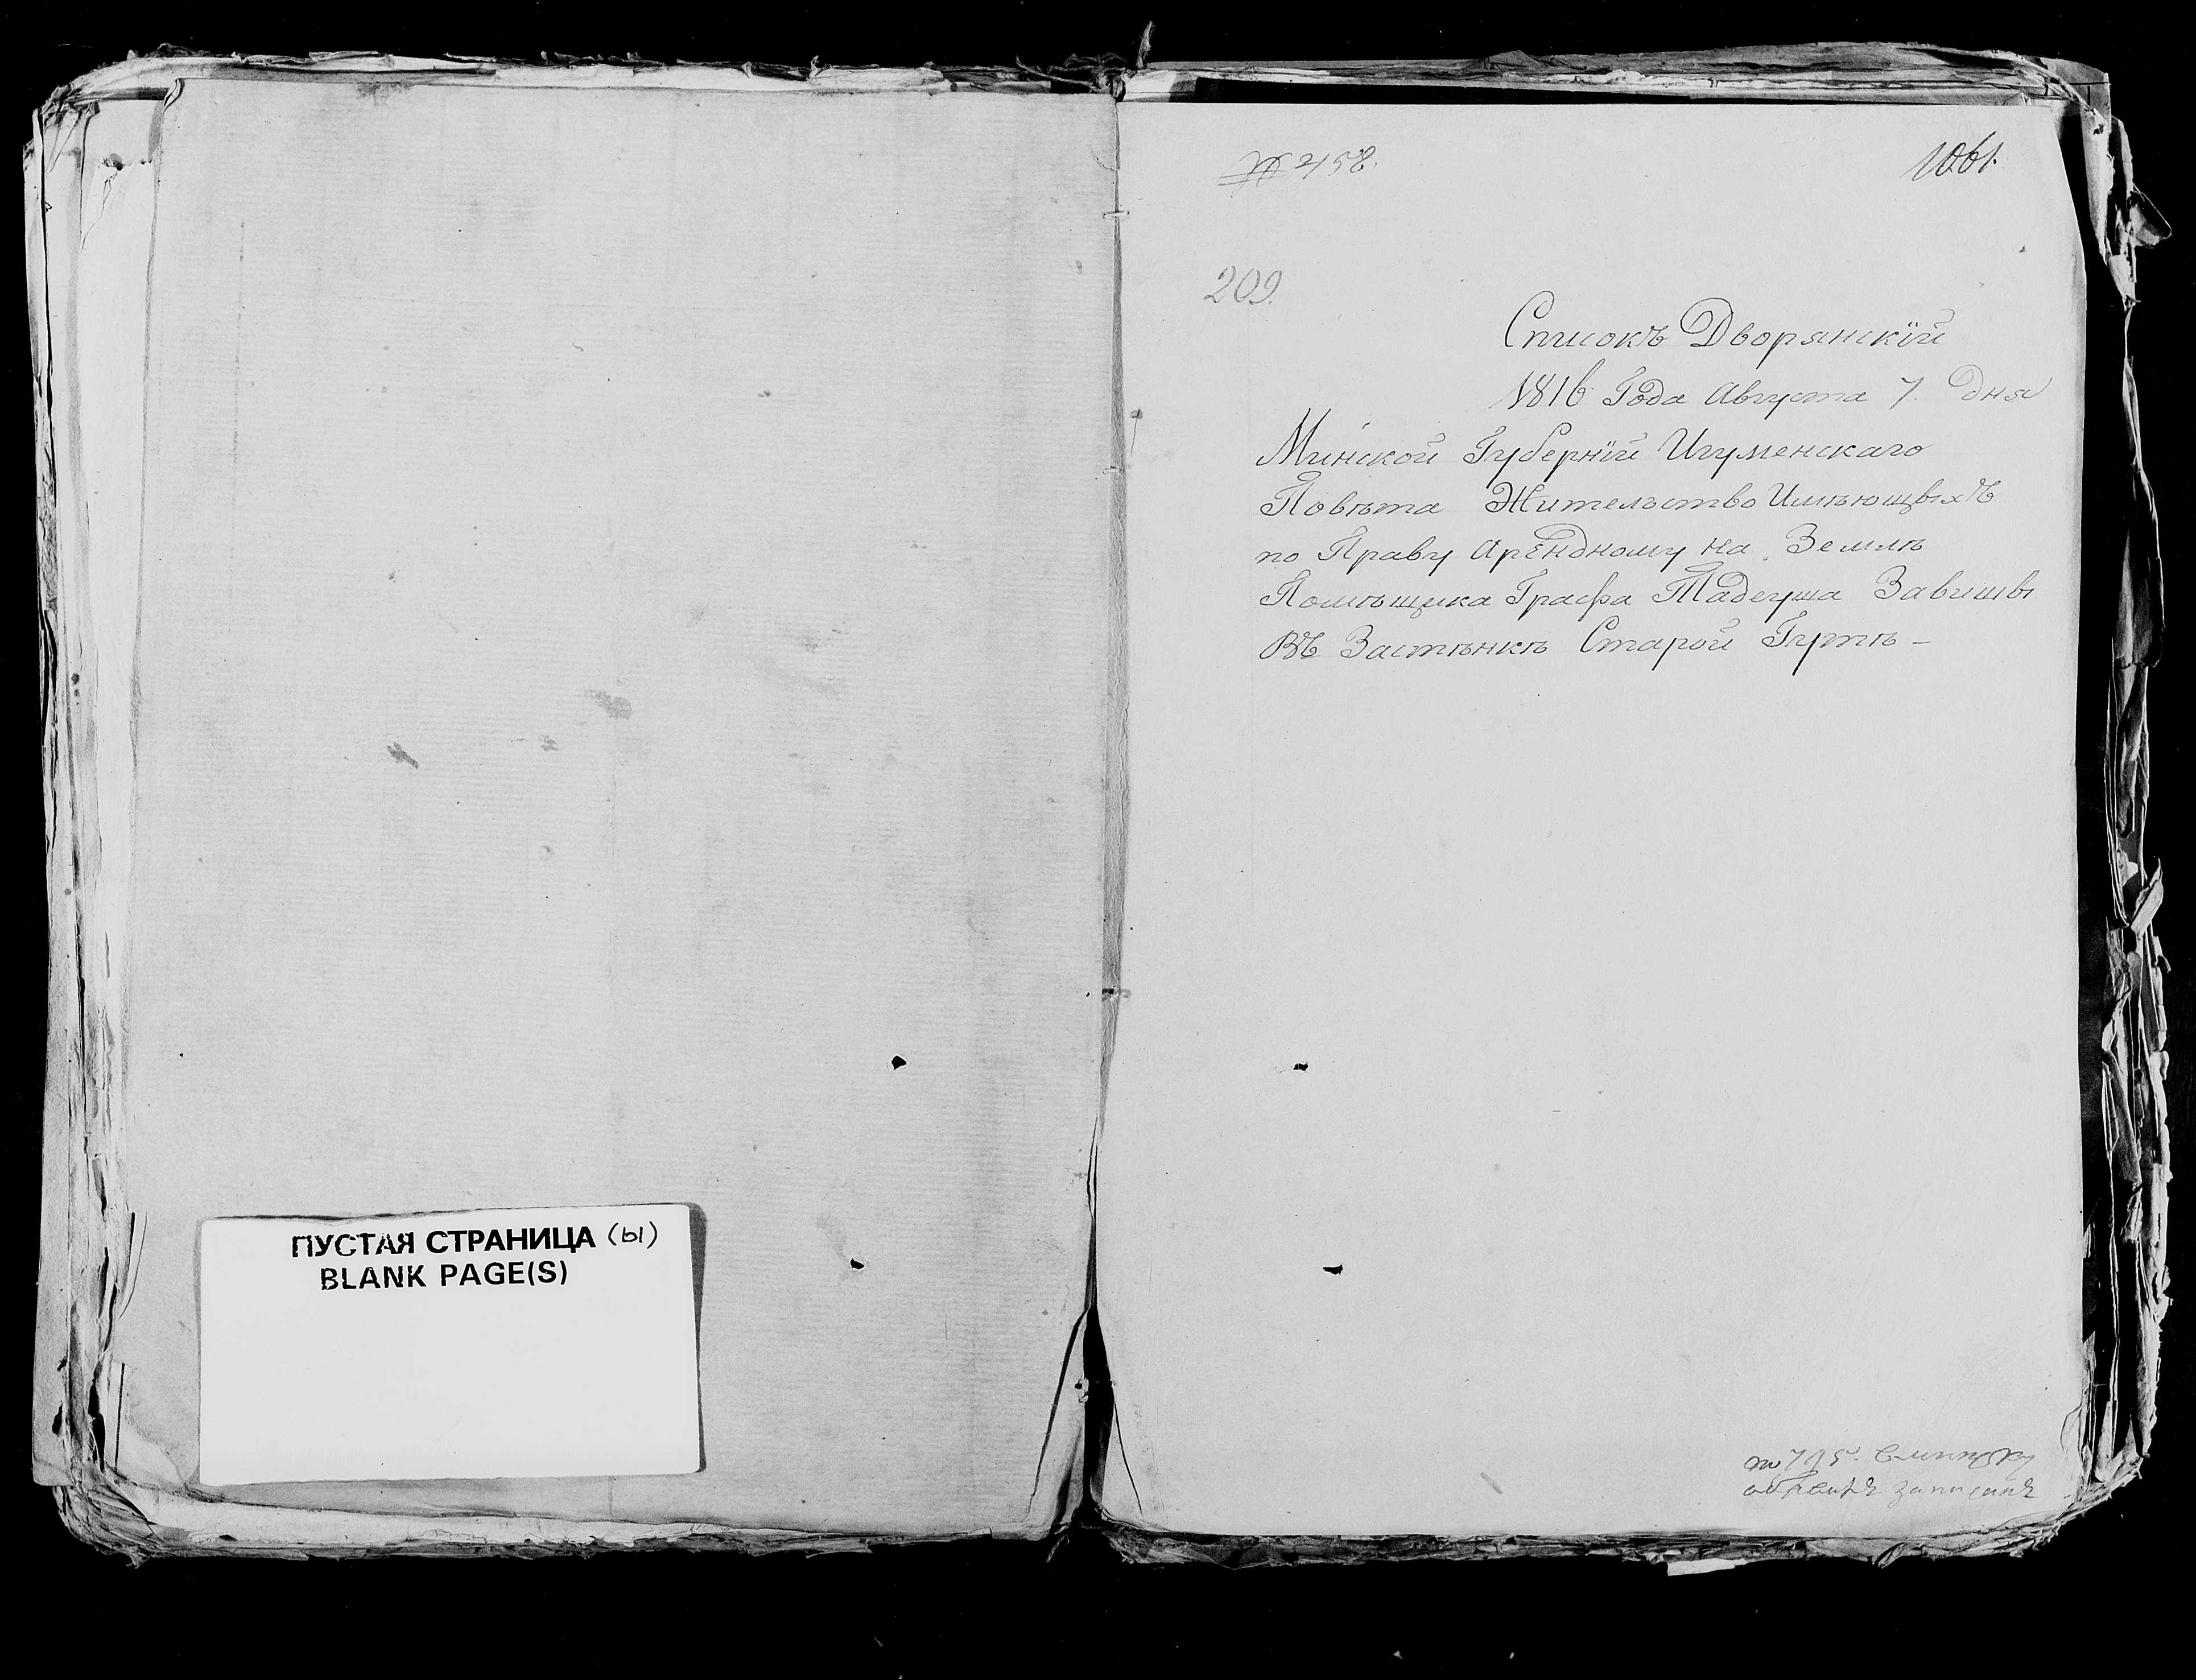 ПУСТАЯ СТРАНИЦА (ы)
BLANK PAGE(S)
№ 458.
1061.
209.
Списокъ Дворянскïй
1816 Года Августа 7. Дня
Минской Губернïй Игуменскаго
Повѣта Жительство Имѣющвıхъ
по Праву Арендному на Землѣ
Помѣщика Графа Тадеуша Завишвı
Въ Застѣнкѣ Старой Гутѣ –
по 795.
записанъ